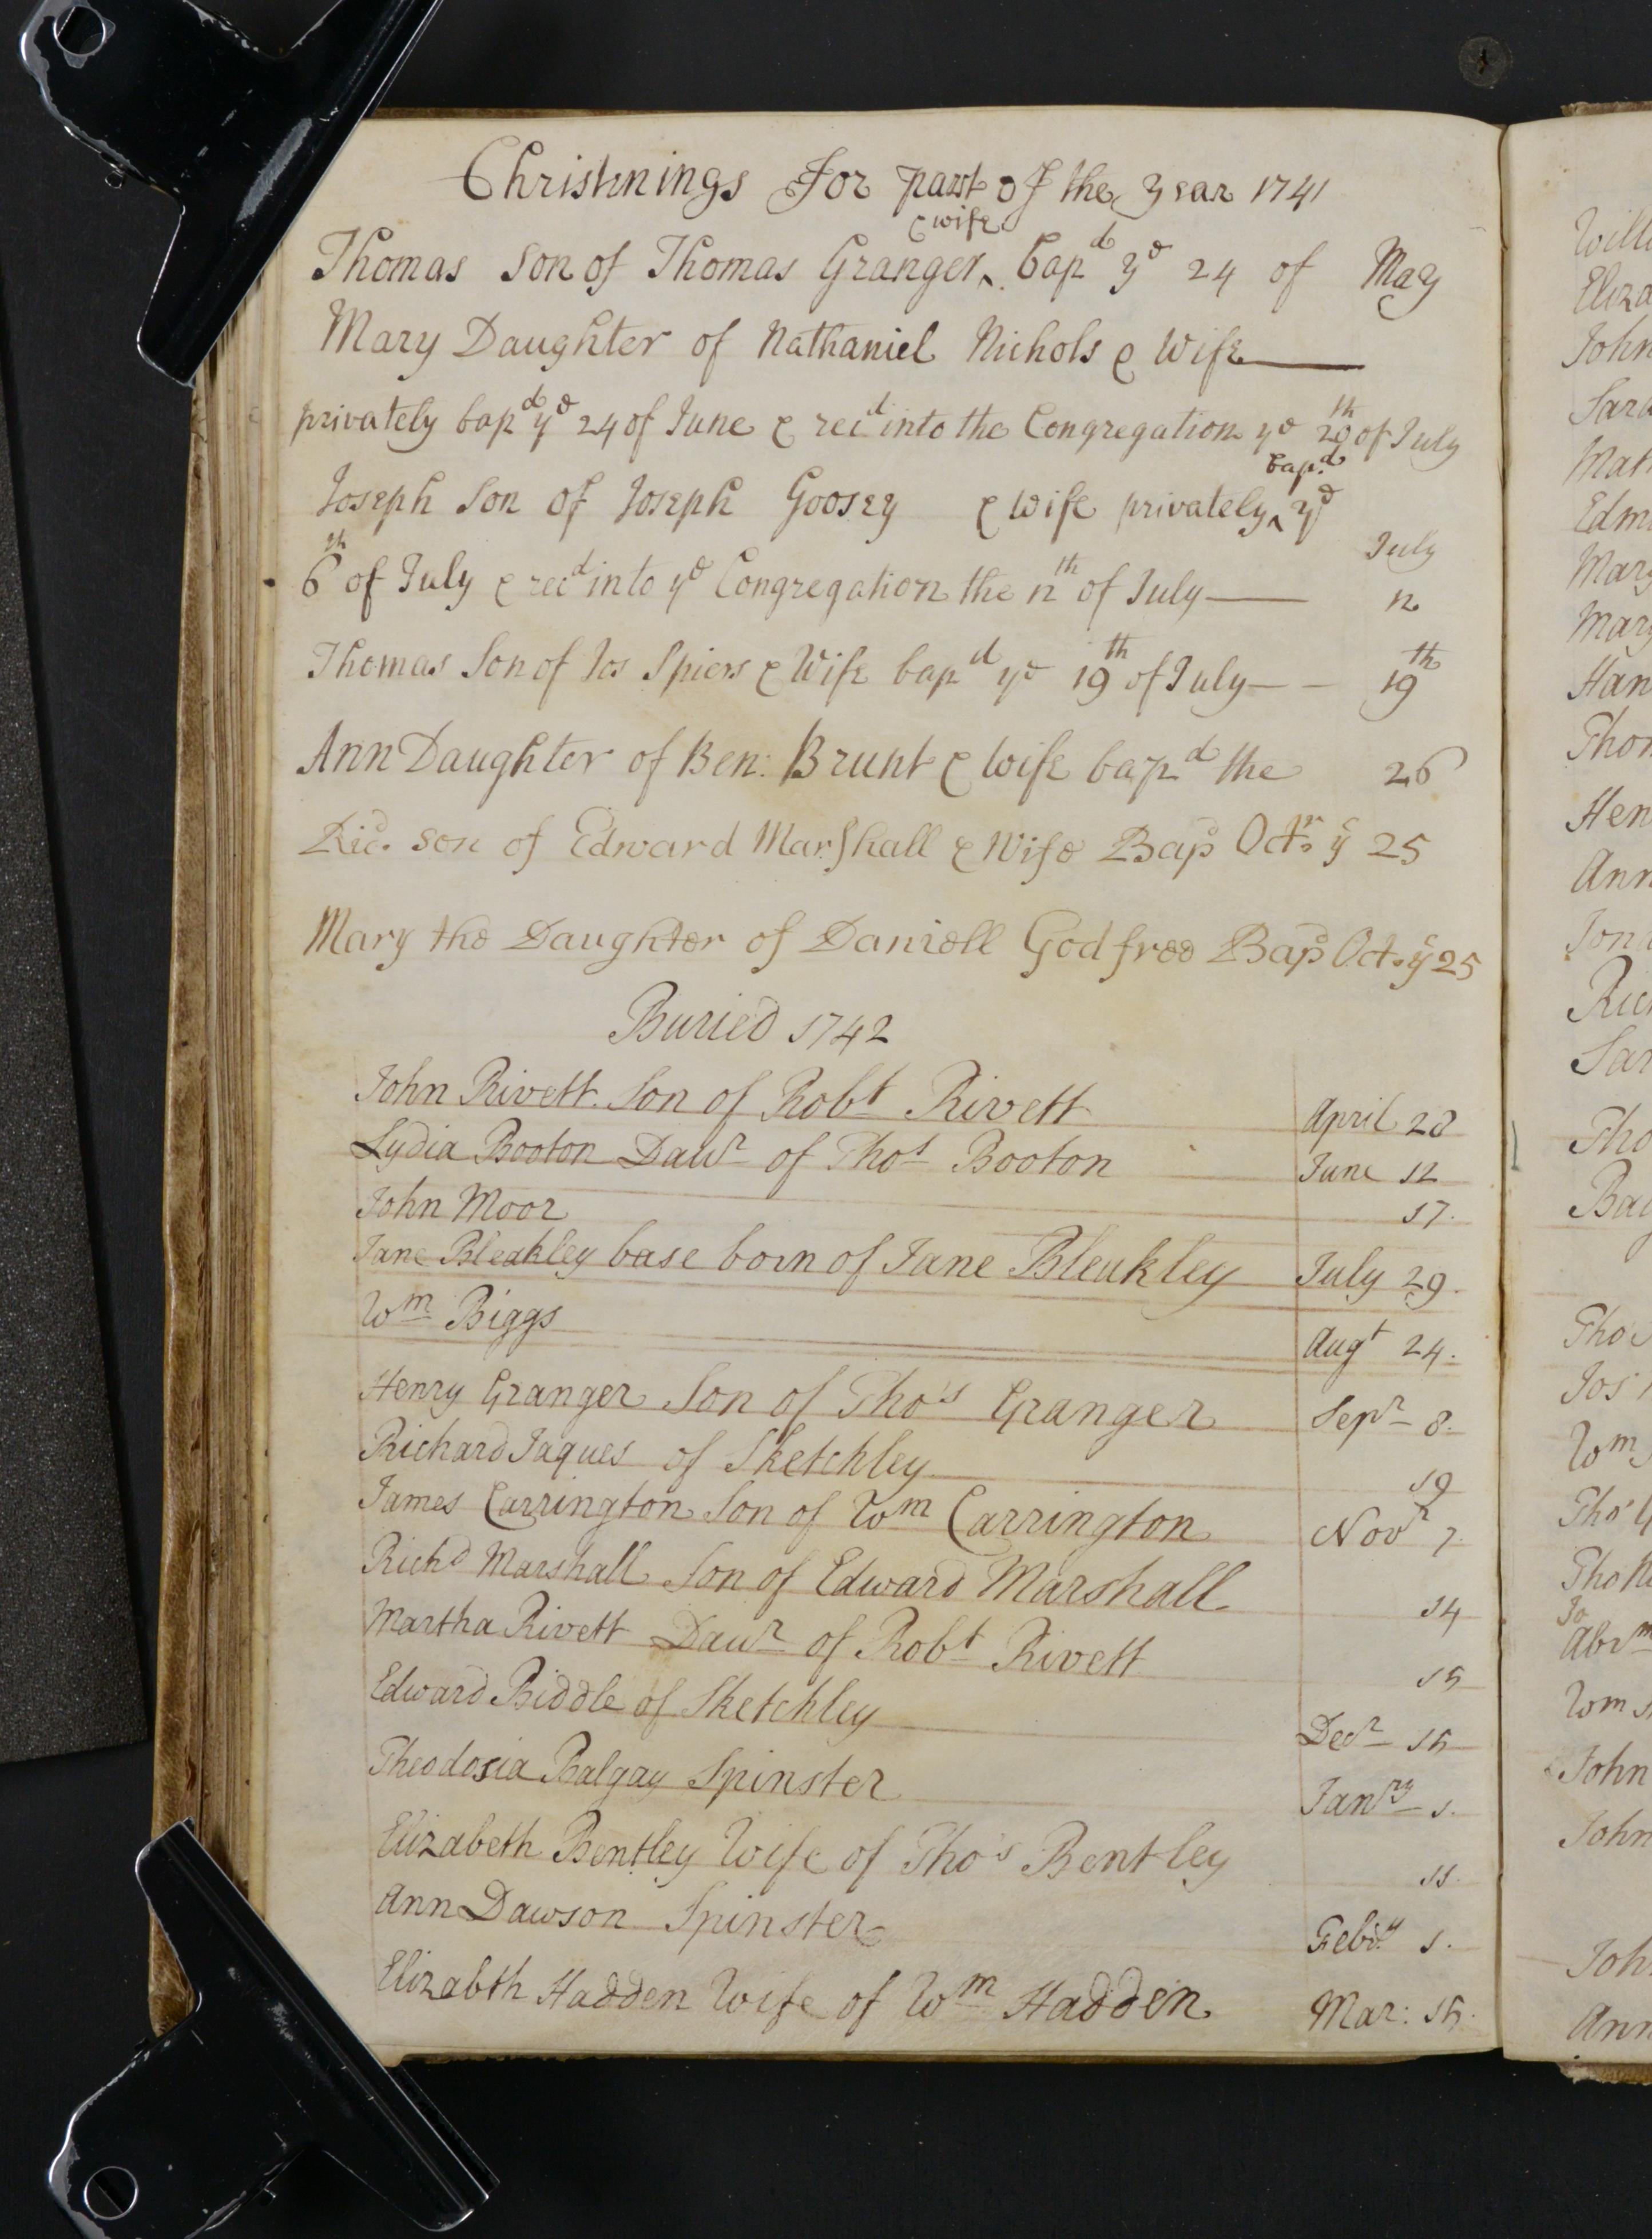 Christnings For part of the year 1741
& wife
Thomas Son of Thomas Granger ‸ bapd ye 24 of May
Mary Daughter of Nathaniel Nichols & Wife
privately bapd ye 24 of June & recd into the Congregation ye 20th of July
bapd
Joseph Son of Joseph Goosey & wife privately ‸ ye
July
6th of July & recd into ye Congregation the 12th of July 12
Thomas Son of Jos Spiers & Wife bapd ye 19th of July 19th
Ann Daughter of Ben: Brunt & wife bapd the 26
Ric. son of Edward Marshall & Wife Bapd Octr ye 25
Mary the Daughter of Daniell Godfree Bapd Oct. ye 25
Buried 1742
John Rivett Son of Robt Rivett April 28
Lydia Booton Dawr of Thos Booton June 12
John Moor 17.
Jane Bleakley base born of Jane Bleakley July 29.
Wm Biggs Augt 24.
Henry Granger Son of Tho's Granger Sepr 8.
Richard Jaques of Sketchley 19
James Carrington Son of Wm Carrington Novr 7.
Richd Marshall Son of Edward Marshall 14
Martha Rivett Dawr of Robt Rivett 15
Edward Biddle of Sketchley Decr 15
Theodosia Balgay Spinster Janry 1.
Elizabeth Bentley Wife of Tho's Bentley 11.
Ann Dawson Spinster Febry 1.
Elizabth Hadden Wife of Wm Hadden Mar: 15.